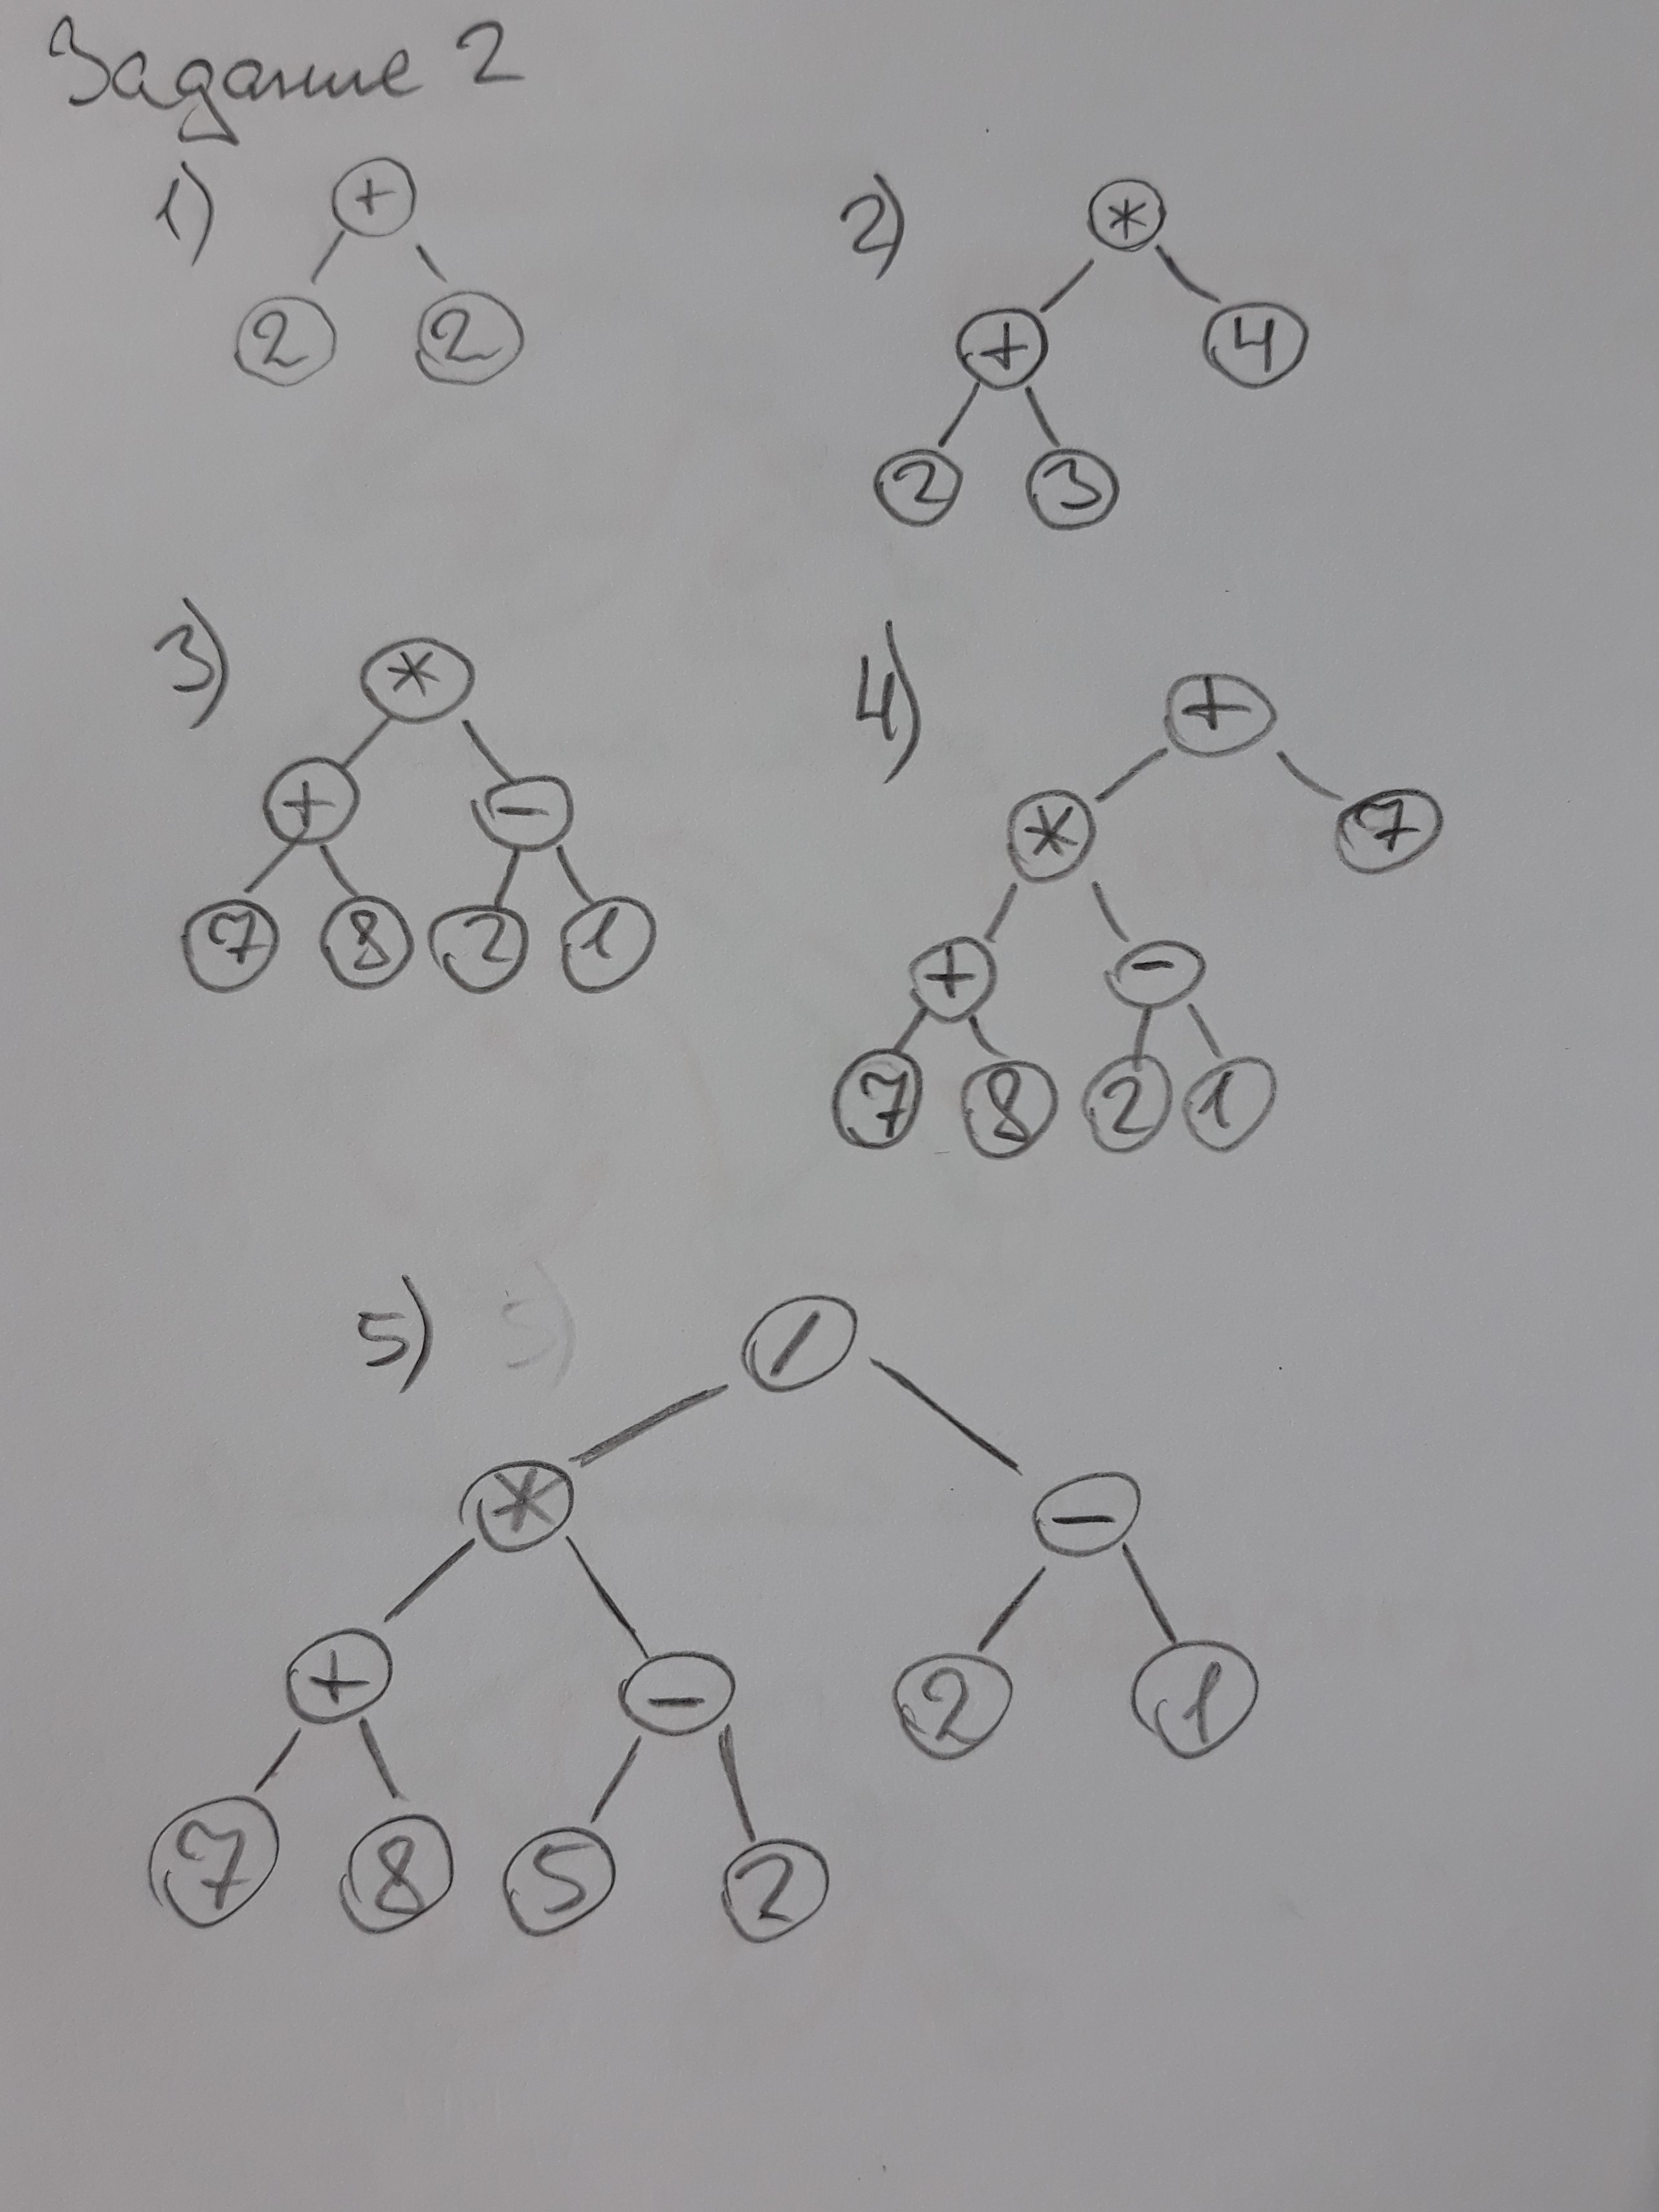 Задание 2
1)
+
2 2
2)
*
+ 4
2 3
3)
*
+ -
7 8 2 1
4)
+
* 7
+ -
7 8 2 1
5) 5)
/
* -
+ - 2 1
7 8 5 2